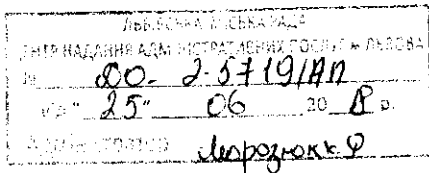 ЛЬВІВСЬКА МІСЬКА РАДА
ЦЕНТР НАДАННЯ АДМІНІСТРАТИВНИХ ПОСЛУГ м. ЛЬВОВА
№ ДО- 2-5719/АП
"25" 06 20 р.
Адміністратор